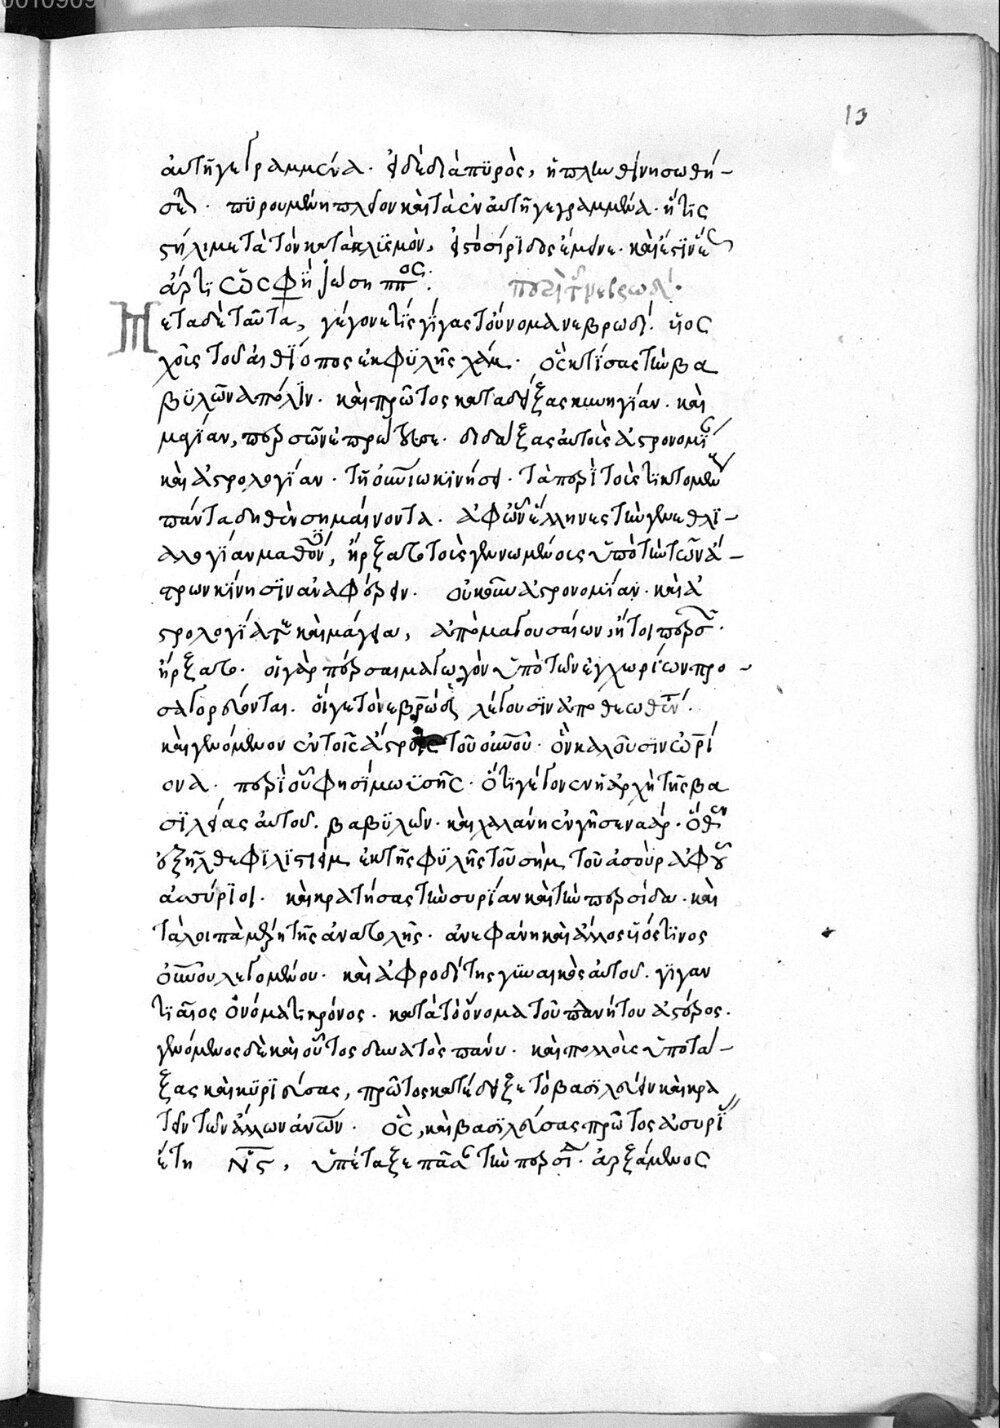 13
ἐν αὐτῆ γεγραμμένα. εἰ δὲ διὰ πυρὸς, ἡ πλινθίνη σωθή-
σεται. πυρουμένη πλέον καὶ τὰ ἐν αὐτῆ γεγραμμένα. ἥτις
στήλη μετὰ τὸν κατακλϊσμὸν, εἰς ὄσίριδος ἔμεινε. καὶ ἔστιν ἕως
ἄρτι ὥς φησὶν Ἰώσηππος.
περὶ τοῦ νεβρωδ.
Μετὰ δὲ ταῦτα, γέγονε τὶς γίγας τοὔνομα νεβρωδ. υἱὸς
χοῦς τοῦ αἰθίοπος ἐκ φϋλῆς χάμ. ὃς κτίσας τὴν βα
βϋλῶνα πόλϊν. καὶ πρῶτος καταδείξας κυνηγίαν. καὶ
μαγίαν, περσῶν ἐπρώτευσε. διδάξας αὐτοὺς ἀστρονομί
καὶ ἀστρολογίαν. τῆ οὐρανίω κινήσει. τὰ περὶ τοὺς τικτομένους
πάντα δῆθεν σημαίνοντα. ἀφ' ὧν ἕλληνες τὴν γενεθλϊ-
αλογίαν μαθόντες, ἤρξαντο τοὺς γενομένους ὑπὸ τὴν τῶν ἀ-
στρων κίνησϊν ἀναφέρειν. οὐκοῦν ἀστρονομίαν. καὶ ἀ
στρολογία τε καὶ μάγεια, ἀπὸ μαγουσαίων, ἤτοι περσῶν.
ἤρξατο. οἱ γὰρ πέρσαι μαγὼγ ὑπὸ τῶν ἐγχωρίων προ-
σαγορεύονται. οἵ γε τὸν νεβρὼδ λέγουσϊν ἀποθεωθέντα.
καὶ γενόμενον ἐν τοῖς ἄστροις τοῦ οὐρανοῦ. ὃν καλοῦσϊν ὠρί
ονα. περὶ οὗ φησὶ μωϋσῆς. ὅτι γέγονεν ἡ ἀρχὴ τῆς βα
σϊλείας αὐτοῦ. βαβϋλὼν. καὶ χαλάνη ἐν γῆ σεναάρ. ὅθεν
ἐξῆλθε φϊλϊστϊεὶμ ἐκ τῆς φϋλῆς τοῦ σὴμ τοῦ ἀσοὺρ ἀφ' οὗ
ἀσσύριοι. καὶ κρατήσας τὴν συρίαν καὶ τὴν περσίδα. καὶ
τὰ λοιπὰ μέρη τῆς ἀνατολῆς. ἀνεφάνη καὶ ἄλλος υἱός τϊνος
οὐρανοῦ λεγομένου. καὶ ἀφροδίτης γϋναικὸς αὐτοῦ. γίγαν
τϊαῖος ὀνόματι κρόνος. κατὰ τὸ ὄνομα τοῦ πλανήτου ἀστέρος.
γενόμενος δὲ καὶ οὗτος δυνατὸς πάνυ. καὶ πολλοὺς ὑποτά-
ξας καὶ κυριεύσας, πρῶτος κατέδειξε τὸ βασϊλεύειν καὶ κρα
τεῖν τῶν ἄλλων ἀνθρώπων. ὃς, καὶ βασϊλεύσας πρῶτος ἀσυρί
ἔτη νϛ, ὑπέταξε πᾶσαν τὴν περσίδα. ἀρξάμενος